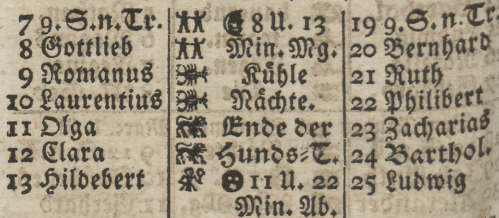 7 9. S. n. Tr. 8 U. 13 19 9. S. n. Tr
8 Gottlieb Min. Mg. 20 Bernhard
9 Romanus Kühle 21 Ruth
10 Laurentius Nächte. 22 Philibert
11 Olga Ende der 23 Zacharias
12 Clara Hunds-T. 24 Barthol.
13 Hildebert 11 U. 22 25 Ludwig
Min. Ab.